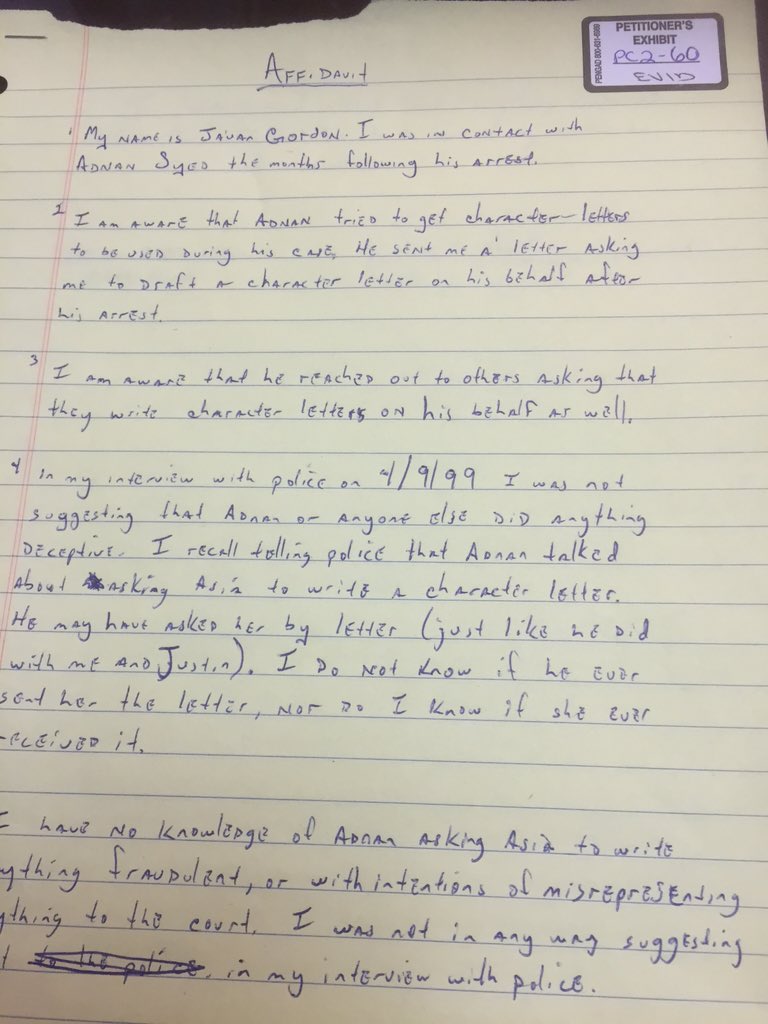 PETITIONER'S
EXHIBIT
PC2-60
EVID
PENGAD 800-631-6989
AFFIDAVIT
1 My name is Ja'uan Gordon. I was in contact with
Adnan Syed the months following his arrest.
2 I am aware that Adnan tried to get character-letters
to be used during his case. He sent me a letter asking
me to draft a character letter on his behalf after
his arrest.
3 I am aware that he reached out to others asking that
they write character letters on his behalf as well.
4 In my interview with police on 4/9/99 I was not
suggesting that Adnan or anyone else did anything
deceptive. I recall telling police that Adnan talked
about asking Asia to write a character letter.
He may have asked her by letter (just like he did
with me and Justin). I do not know if he ever
sent her the letter, nor do I know if she ever
received it.
I have no knowledge of Adnan asking Asia to write
ything fraudulent, or with intentions of misrepresenting
ything to the court. I was not in any way suggesting
t to the police, in my interview with police.